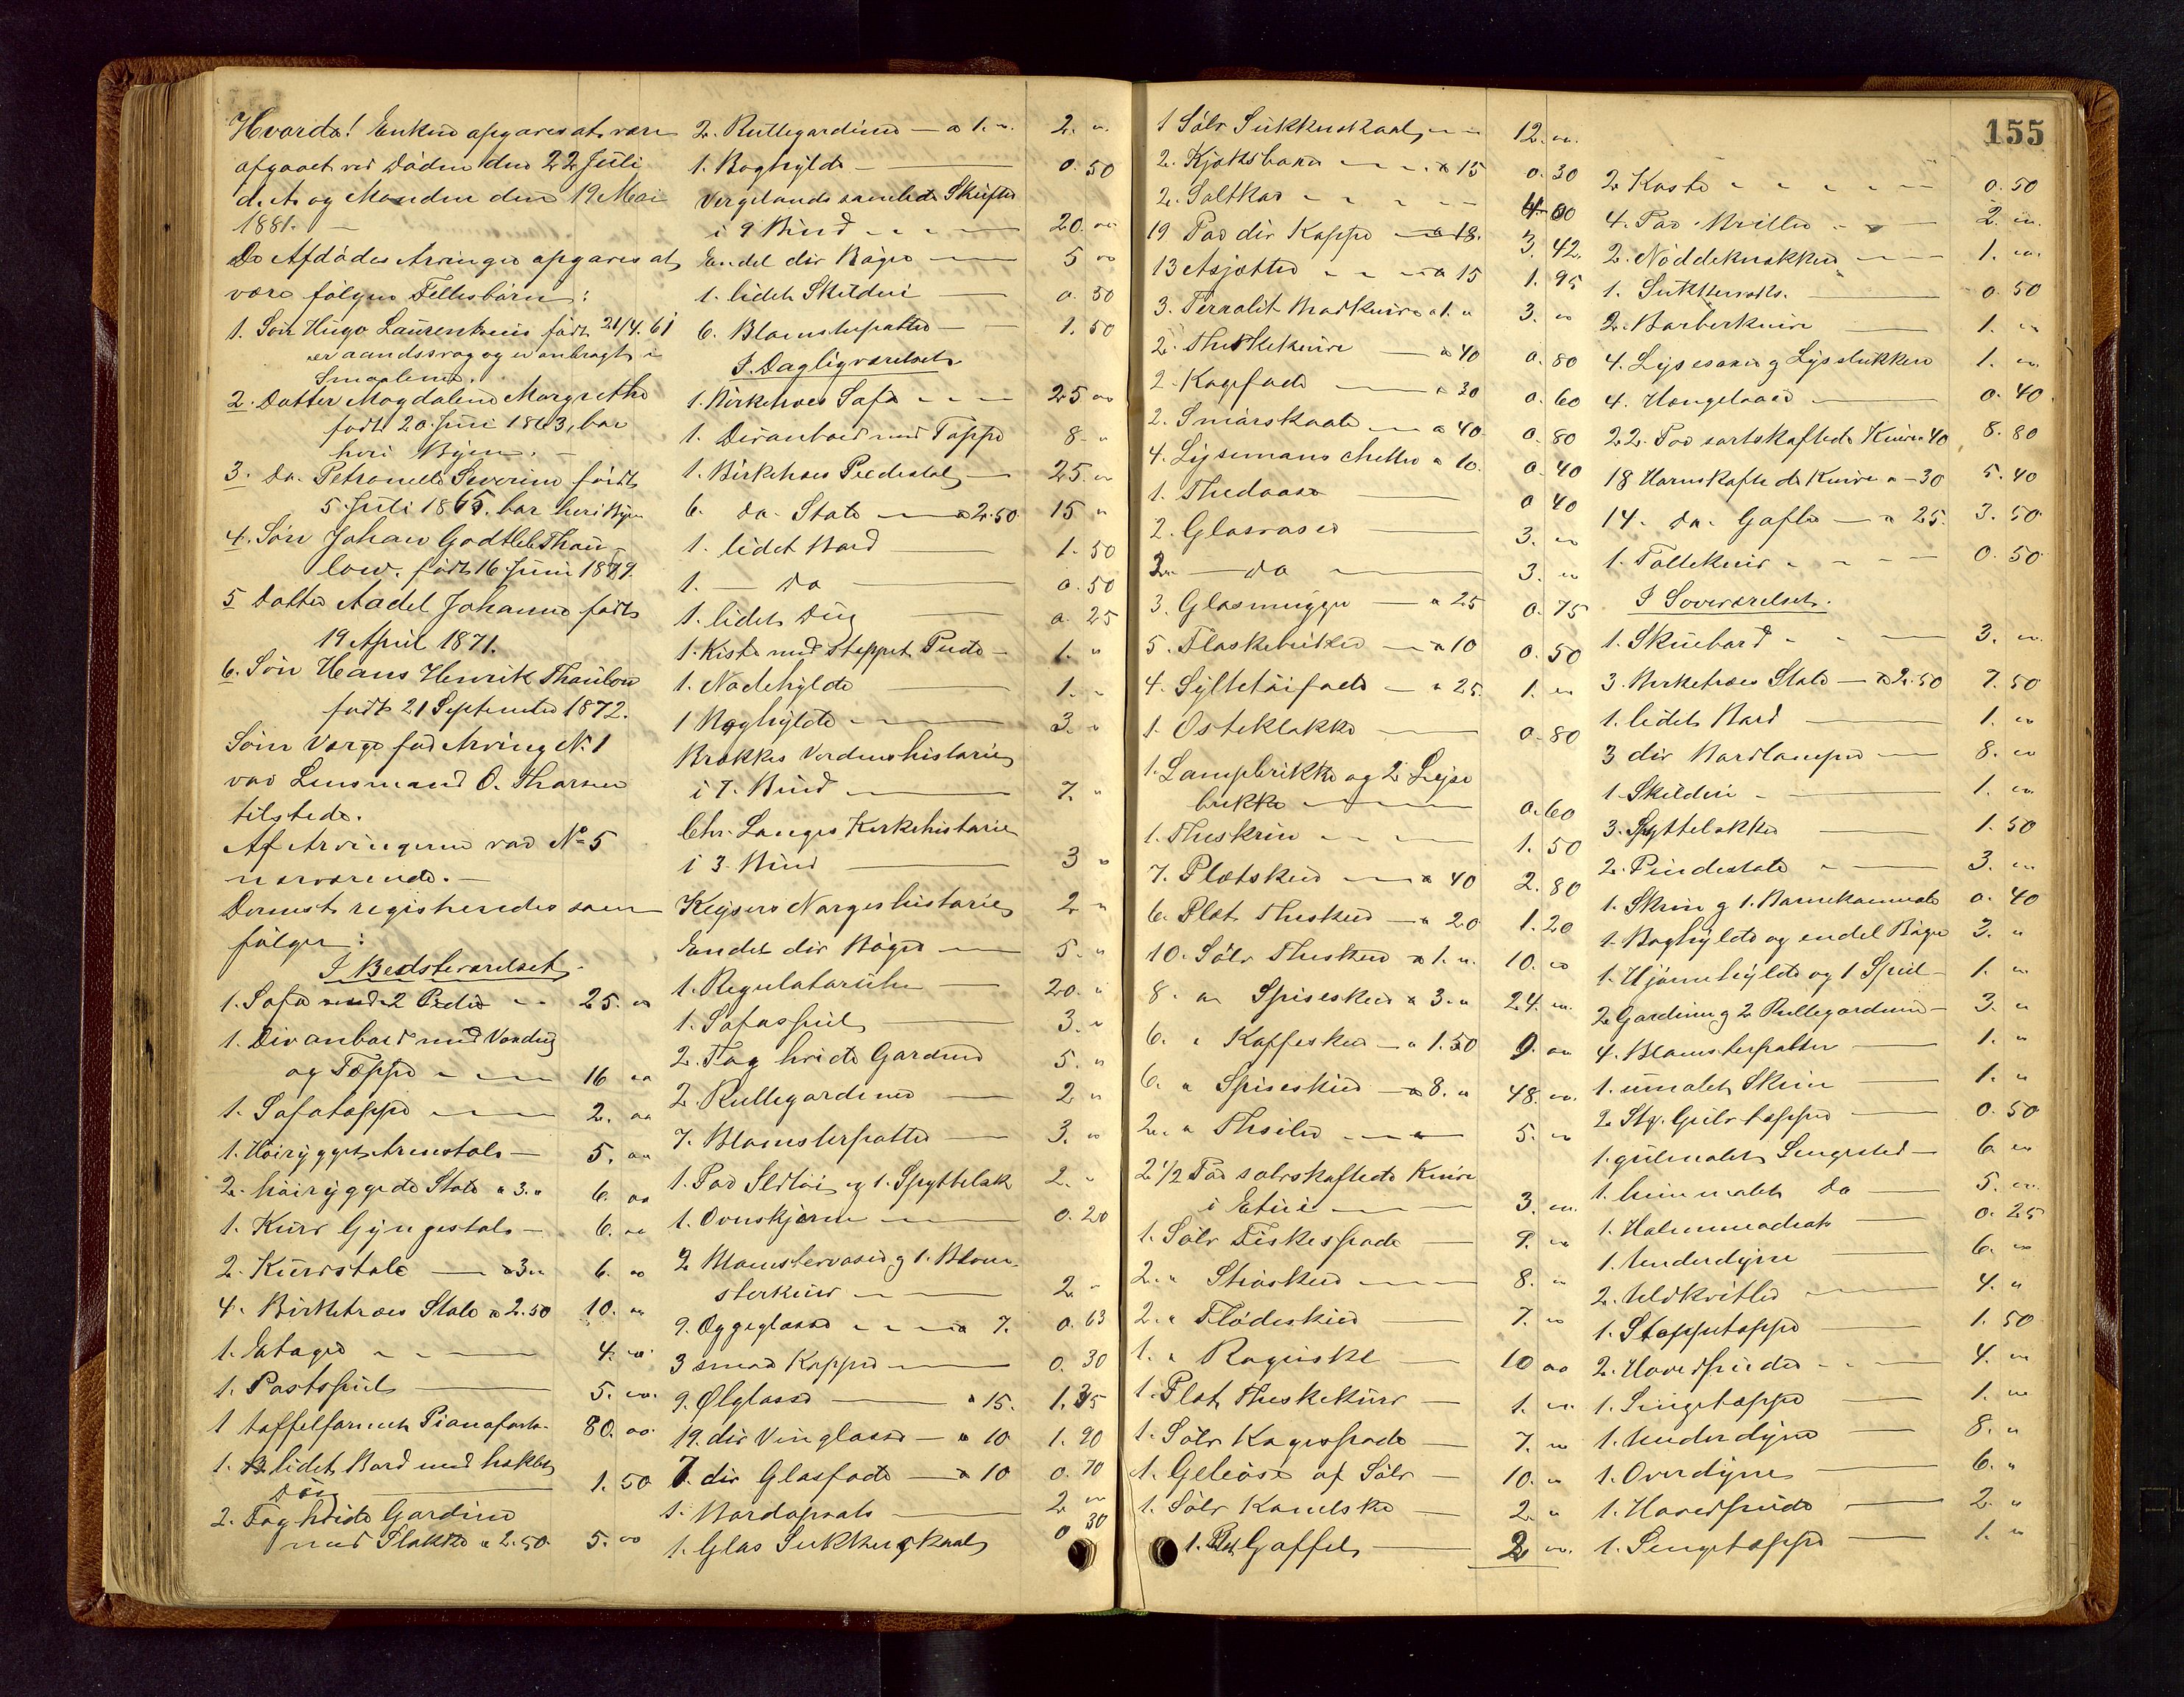 Hvorda! Enken opgaves at være
afgaaet ved Døden den 22 Juli
d. A. og Manden den 19 Mai
1881. —
De Afdødes Arvinger opgaves at
være følgende Fellesbørn:
1. Søn Hugo Laurentius født 21/4. 61
er aandssvag og er anbragt i
Smaalenene.
2. Datter Magdalene Margrethe
født 20. Juni 1863, bor
heri Byen. —
3. Do. Petronelle Severine født
5. Juli 1865. bor heri Byen
4. Søn Johan Godtlieb Thau-
low. født 16 Juni 1869.
5 Datter Aadel Johanne født
19 April 1871.
6. Søn Hans Henrik Thaulow
født 21 September 1872.
Som Værge for Arving No. 1
var Lensmand O. Thorsen
tilstede.
Af Arvingerne var No 5
nærværende. —
Dernæst registreredes som
følger:
I Bedsteværelset.
1. Sofa med 2 Puder 25. "
1. Divanbord med Voxdug
og Tæppe 16 "
1. Sofatæppe 2. "
1. Høirygget Lænestol — 5. "
2. høiryggede Stole a 3. " 6. "
1. Kurv Gyngestol — 6. "
2. Kurvstole — a 3 " 6. "
4. Birketræes Stole a 2.50 10. "
1. Etager 4. "
1. Postspeil 5. "
1 taffelformet Pianoforte 80. "
1. lidet Bord med heklet
Dug 1. 50
2. Fag hvide Gardiner
med Flakke a 2.50. 5. "
2. Rullegardiner — a 1. " 2. "
1. Boghylde 0. 50
Vergelands samlede Skrifter
i 9 Bind 20. "
Endel div Bøger 5 "
1. lidet Skilderi 0. 50
6. Blomsterpotter 1. 50
I Dagligværelset.
1. Birketræes Sofa 25 "
1. Divanbord med Tæppe 8. "
1. Birketræes Piedestal 25. "
6. do. Stole — a 2.50 15 "
1. lidet Bord 1. 50
1. — do 0. 50
1. lidet Dug 0. 25
1. Kiste med stoppet Pude — 1. "
1. Nodehylde 1. "
1 Boghylde 3. "
Brokkes Verdenshistorie
i 7. Bind 7. "
Chr. Langes Kirkehistorie
i 3. Bind 3 "
Keysers Norges historie 2 "
Endel div Bøger 5. "
1. Regulatoruhr 20. "
1. Sofaspeil 3. "
2. Fag hvide Gardiner 5. "
2. Rullegardiner 2 "
7. Blomsterpotter 3. "
1. Par Ildtøi og 1. Spyttebak 2. "
1. Ovnskjerm 0. 20
2 Blomstervaser og 1. Blom-
sterkurv 2 "
9. Æggeglasse a 7. 0. 63
3 smaa Kopper 0. 30
9. Ølglasse a 15. 1. 35
19. div Vinglasse — a 10 1. 90
7. div Glasfade — a 10 0. 70
1. Bordopsats 2 "
1. Glas Sukkerskaal 0 30
1 Sølv Sukkerskaal 12. "
2. Kjøttsbaner a 15 0. 30
2. Saltkar
19 Par div Kopper a 18. 3. 42.
13 Asjetter a 15 1. 95
3. Terralit Brødkurve a 1. " 3. "
2. Theskekurve — a 40 0. 80
2. Kagefade — a 30 0. 60
2. Smørskaale a 40 0. 80
4. Lysemanschetter a 10. 0. 40
1. Thedaase 0 40
2. Glasvaser 3. "
2 — do 3. "
3. Glasmugger — a 25 0. 75
5. Flaskebrikker — a 10 0. 50
4. Syltetøifade — a 25. 1. "
1. Osteklokke 0. 80
1. Lampebrikke og 2 Lyse
brikke 0. 60
1. Theskrin 1. 50
7. Pletskeer a 40 2. 80
6. Plet Theskeer — a 20 1. 20
10. Sølv Theskeer a 1. " 10. "
8. " Spiseskeer a 3. " 24. "
6. " Kaffeskeer — a 1.50 9. "
6. " Spiseskeer — a 8. " 48. "
2. " Thesiler 5. "
2 1/2 Par sølvskaftede Knive
i Etui 3. "
1. Sølv Fiskespade 9. "
2. " Strøskeer 8. "
2. " Flødeskeer 7. "
1. " Raguske 10 "
1. Plet Theskekurv 1. "
1. Sølv Kagespade 7. "
1. Geleøse af Sølv 10. "
1. Sølv Kandelske 2. "
1. Plet Gaffel 2 "
155
2. Koste 0. 50
4. Par Briller 2. "
2. Nøddeknækker 1. "
1. Sukkersaks. 0. 50
2. Barberknive 1. "
4. Lysesaxe og Lyseslukkere 1. "
4. Hængelaase 0. 40
22. Par sortskaftede Knive 40 8. 80
18 Hornskaftede Knive a — 30 5. 40
14. do. Gafler — a 25. 3. 50
1. Foldekniv 0. 50
I Soveværelset.
1. Skuebord 3. "
3. Birketræes Stole — a 2.50 7. 50
1. lidet Bord 1. "
3 div Bordlamper 8. "
1. Skilderi 1. "
3. Spyttebakker 1. 50
2. Pindestole 3. "
1. Skrin og 1. Barnekommode 0. 40
1. Boghylde og endel Bøger 3. "
1. Hjørnehylde og 1 Speil 1. "
2 Gardiner og 2 Rullegardiner — 3. "
4. Blomsterpotter 1. "
1. umalet Skrin 1. "
2 Stk. Gulvtæpper 0. 50
1. gulmalet Sengested — 6 "
1. brunmalet Do 5. "
1. Halmmadrats 0. 25
1. Underdyne 6. "
2. Uldkvitler 4. "
1. Stoppetæppe 1. 50
2. Hovedpuder 4. "
1. Sengetæppe 1. "
1. Underdyne 8. "
1. Overdyne 6. "
1. Hovedpude 2. "
1. Sengetæppe 1. "